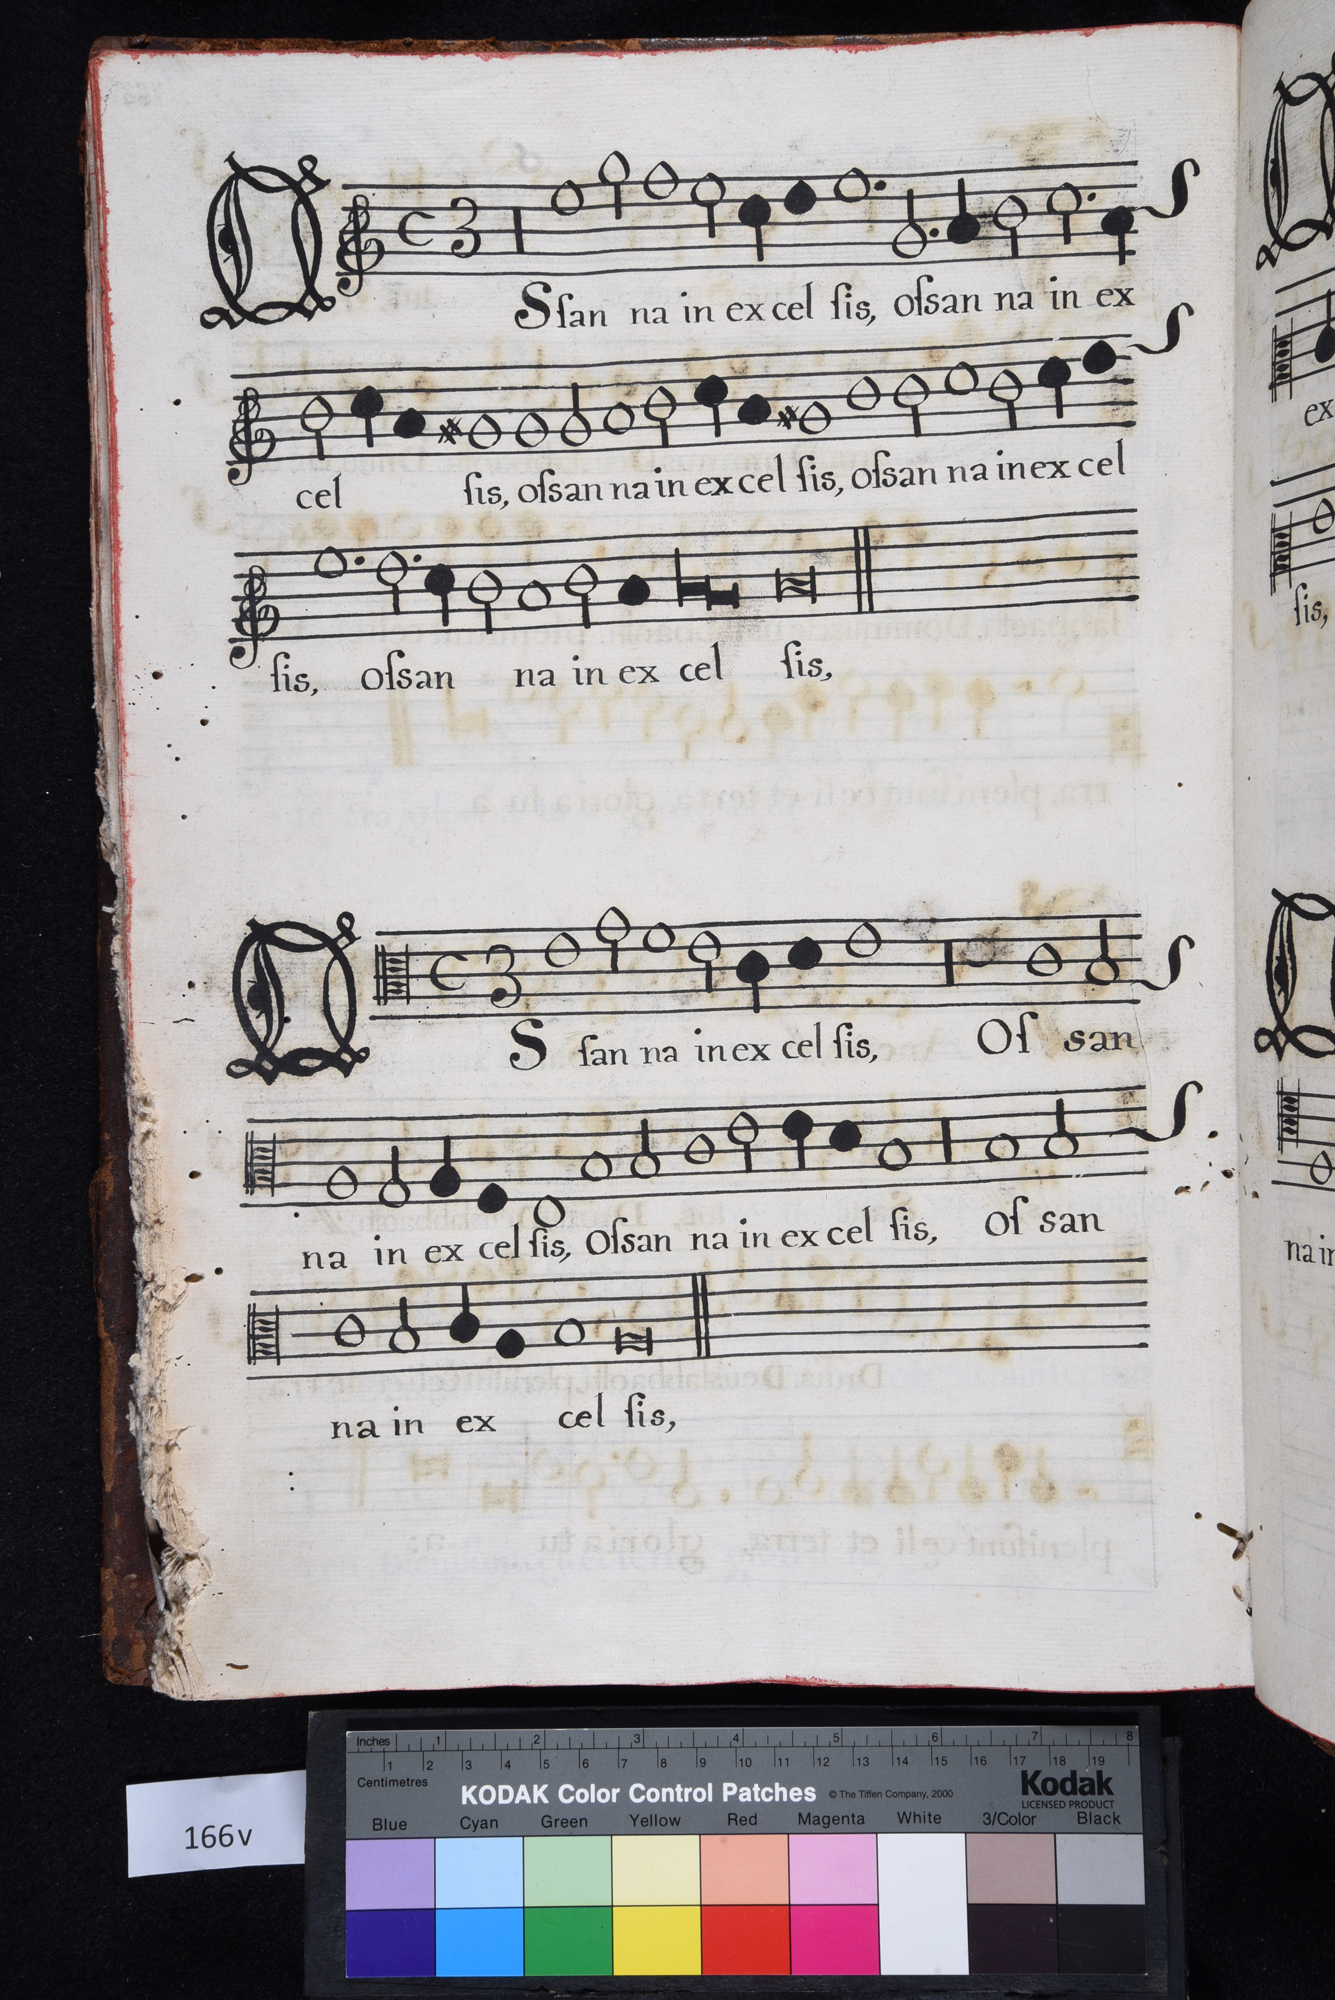 C 3
OSſan na in excel ſis, oſsan na in ex
cel ſis, oſsan na in excel ſis, oſsan na in ex cel
ſis, oſsan na in ex cel ſis,
C 3
OS ſan na in ex cel ſis, Oſ san
na in ex cel ſis, Oſsan na in ex cel ſis, Oſ san
na in ex cel ſis,
ex
ſis,
na in
166v
Inches 1 2 3 4 5 6 7 8
Centimetres 1 2 3 4 5 6 7 8 9 10 11 12 13 14 15 16 17 18 19
KODAK Color Control Patches © The Tiffen Company, 2000 Kodak
LICENSED PRODUCT
Blue Cyan Green Yellow Red Magenta White 3/Color Black